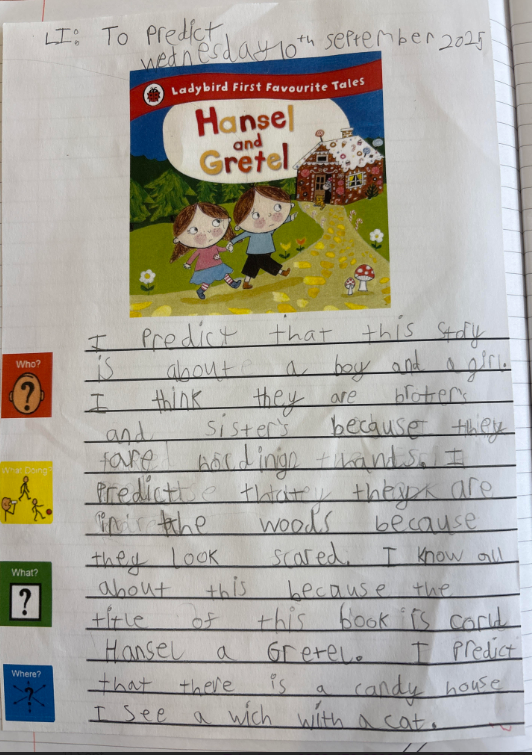 LI: To Predict
wednesday 10th september 2025
Ladybird First Favourite Tales
Hansel
and
Gretel
I Predict that this story
Who?
is about a boy and a girl.
I think they are broters
and sister's because they
are holding hands. I
What Doing?
Predict that they are
in the woods because
they look scared. I know all
What?
about this because the
title of this book is carld
Hansel a Gretel. I Predict
Where?
that there is a candy house
I see a wich with a cat.